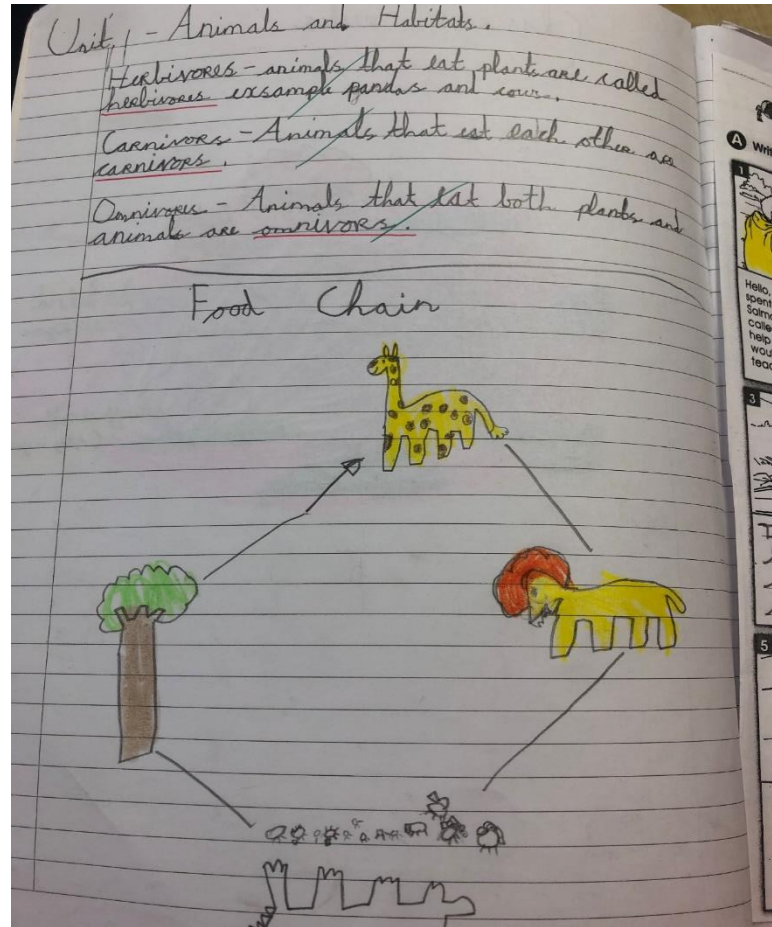 Unit 1 - Animals and Habitats.
Herbivores - animals that eat plants are called
herbivores exsample pandas and cows.
Carnivors - Animals that eat each other are
carnivors.
Omnivores - Animals that eat both plants and
animals are omnivors.
Food Chain
A Writ
1
Hello,
spent
Salm
calle
help
wou
teac
3
5